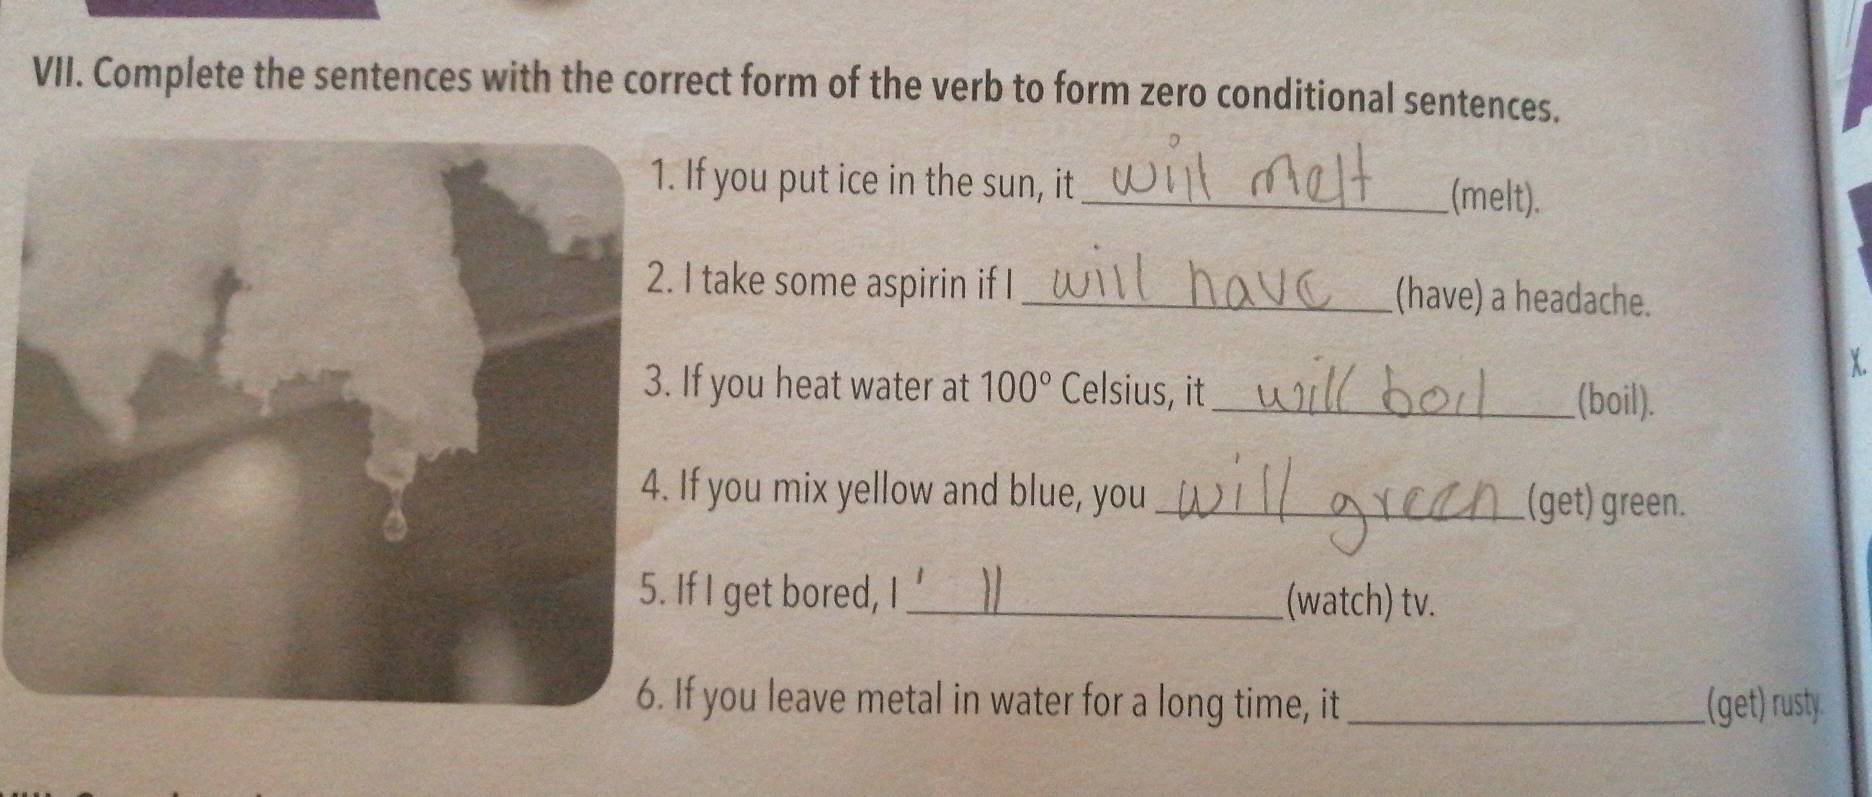 VII. Complete the sentences with the correct form of the verb to form zero conditional sentences.
1. If you put ice in the sun, it will melt (melt).
2. I take some aspirin if I will have (have) a headache.
3. If you heat water at 100º Celsius, it will boil (boil).
4. If you mix yellow and blue, you will green (get) green.
5. If I get bored, I 'll (watch) tv.
6. If you leave metal in water for a long time, it (get) rusty.
X.